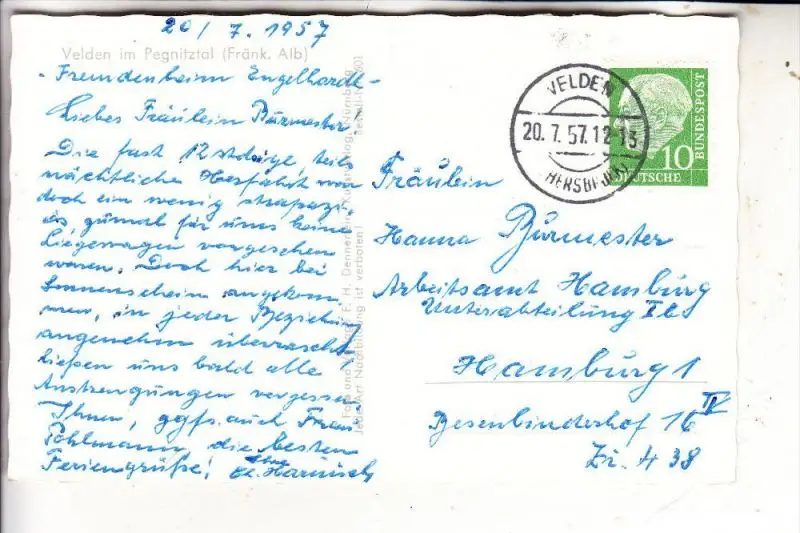 20/7.1957
Velden im Pegnitztal (Fränk. Alb)
- Fremdenheim Engelhardt -
Liebes Fräulein Bürmester!
Die fast 12 stdige, teils
nächtliche Herfahrt war
doch ein wenig strapazi-
ös zumal für uns keine
Liegewagen vorgesehen
waren. Doch hier bei
Sonnenschein angekom
men, in jeder Beziehung
angenehm überrascht,
ließen uns bald alle
Anstrengungen vergessen
Ihnen, ggfs. auch Frau
Pohlmann die besten
Feriengrüße! Ihre
Harnisch
Foto und Verlag F. H. Denner, Nürnberg
Jede Art Nachbildung ist verboten!
VELDEN
20.7.57.12-13
HERSBRUCK
10
DEUTSCHE
BUNDESPOST
Fräulein
Hanna Bürmester
Arbeitsamt Hamburg
Unterabteilung Ib
Hamburg 1
Besenbinderhof 16 IV
Zi. 438